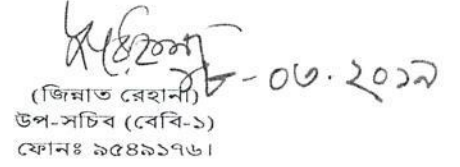 ১৮-০৩.২০১৯
(জিন্নাত রেহানা)
উপ-সচিব (বেবি-১)
ফোনঃ ৯৫৪৯১৭৬।